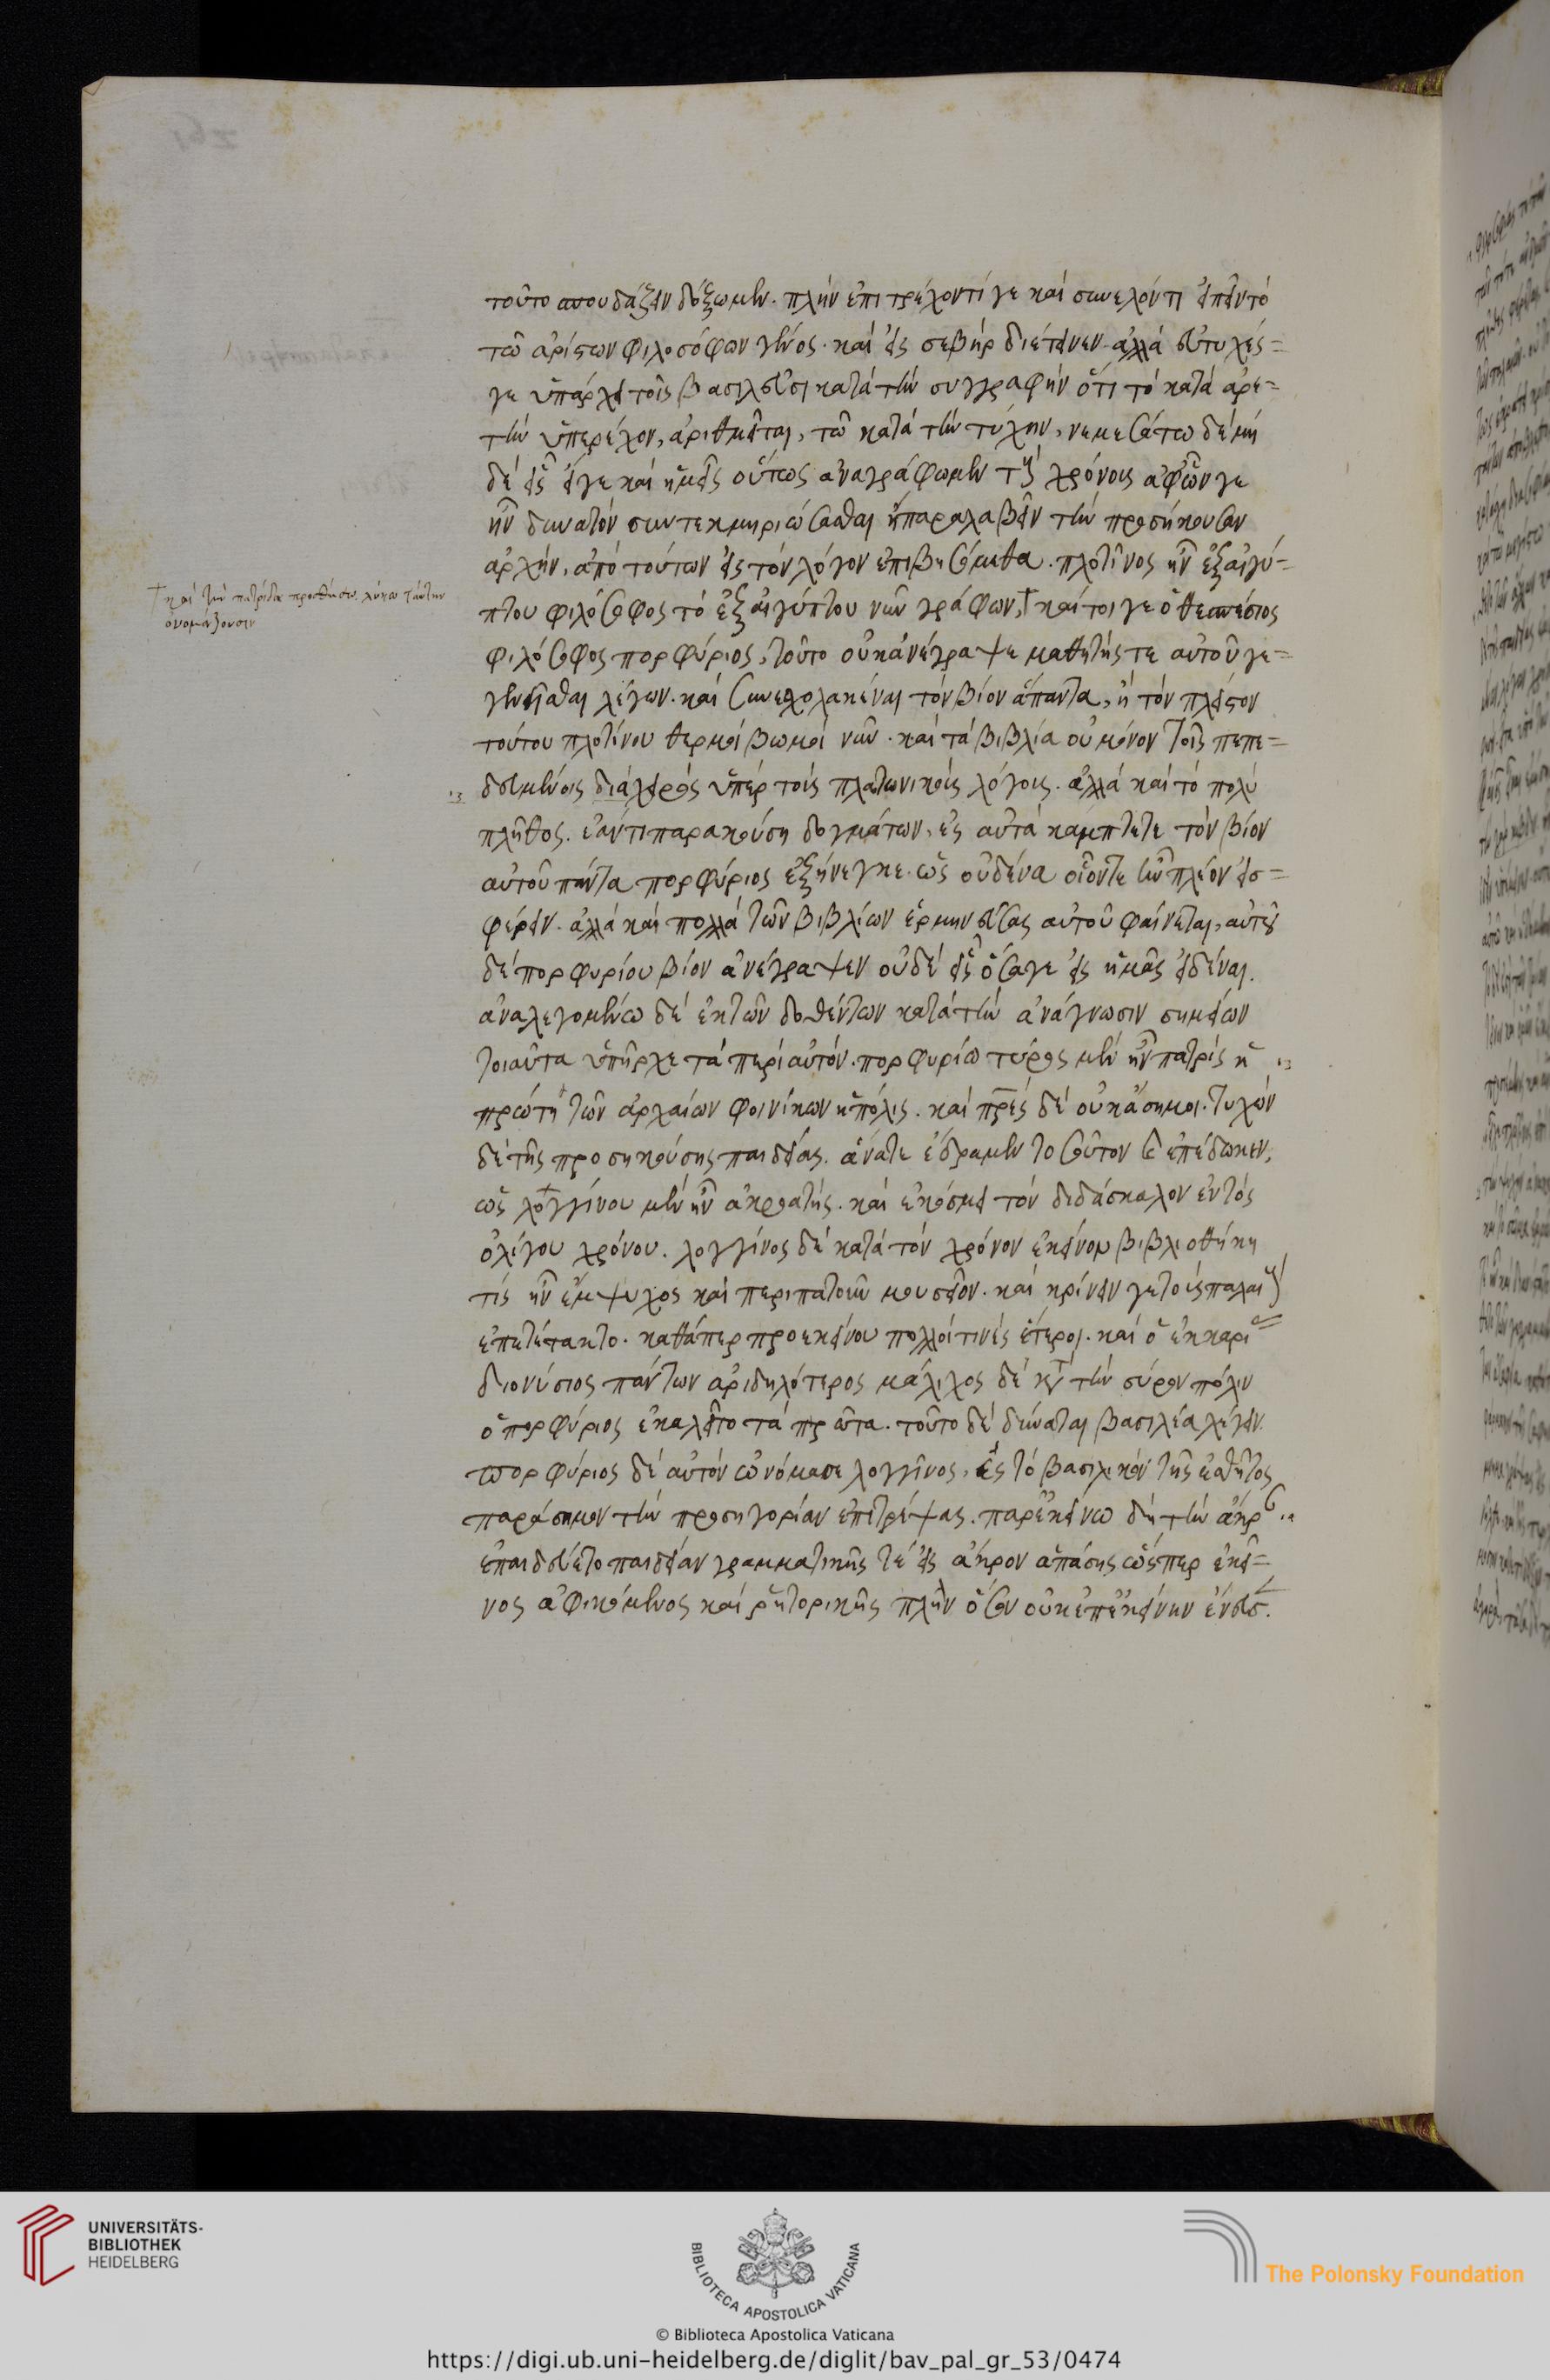 τοῦτο σπουδάζειν δόξωμεν. πλὴν ἐπιτρέχοντί γε καὶ συνελόντι εἰπεῖν τὸ
τῶ ἀρίστων φιλοσόφων γένος. καὶ εἰς σεβῆρ διέτεινεν ἀλλὰ εὐτυχές=
γε ὑπάρχει τοῖς βασιλεῦσι κατὰ τὴν συγγραφὴν ὅτι τὸ κατὰ ἀρε=
τὴν ὑπερέχον, ἀριθμεῖται, τῶ κατὰ τὴν τύχην, νεμεσάτω δὲ μὴ
δὲ εἷς εἴγε καὶ ἡμεῖς οὕτως ἀναγράφωμεν τοὺς χρόνοις ἀφῶν γε
ἦν δυνατὸν συντεκμηριώσασθαι ἢ παραλαβεῖν τὴν προσήκουσαν
ἀρχήν, ἀπὸ τούτων εἰς τὸν λόγον ἐπιβησόμεθα. πλοτῖνος ἦν ἐξ αἰγύ=
πτου φιλόσοφος τὸ ἐξ αἰγύπτου νῦν γράφων,† καίτοι γε ὁ θεσπέσιος
φιλόσοφος πορφύριος, τοῦτο οὐκ ἀνέγραψε μαθητής τε αὐτοῦ γε=
γενῆσθαι λέγων. καὶ συνεσχολακέναι τὸν βίον ἅπαντα, ἢ τὸν πλεῖστον
τούτου πλοτίνου θερμοὶ βωμοὶ νῦν. καὶ τὰ βιβλία οὐ μόνον τοῖς πεπε=
δευμένοις διάχειρος ὑπὲρ τοὺς πλατωνικοὺς λόγοις. ἀλλὰ καὶ τὸ πολὺ
πλῆθος. ἐάντι παρακούση δογμάτων, ἐς αὐτὰ καμπτετε τὸν βίον
αὐτοῦ πάντα πορφύριος ἐξήνεγκε. ὡς οὐδένα οἷόντε ἦν πλέον εἰσ=
φέρειν. ἀλλὰ καὶ πολλὰ τῶν βιβλίων ἑρμηνεύσας αὐτοῦ φαίνεται, αὐτοῦ
δὲ πορφυρίου βίον ἀνέγραψεν οὐδὲ εἷς ὅσαγε εἰς ἡμᾶς εἰδέναι.
ἀναλεγομένω δὲ ἐκ τῶν δοθέντων κατὰ τὴν ἀνάγνωσιν σημείων
τοιαῦτα ὑπῆρχε τὰ περὶ αὐτόν. πορφυρίω τύρος μὲν ἦν πατρὶς ἡ
πρώτη τῶν ἀρχαίων φοινίκων ἡ πόλις. καὶ πρες δὲ οὐκ ἄσημοι. τυχὼν
δὲ τῆς προσηκούσης παιδείας. ἀνάτε ἔδραμεν τοσοῦτον καὶ ἐπέδωκεν,
ὡς λογγίνου μὲν ἦν ἀκροατής. καὶ ἐκόσμει τὸν διδάσκαλον ἐντὸς
ὀλίγου χρόνου. λογγῖνος δὲ κατὰ τὸν χρόνον ἐκεῖνον βιβλιοθήκη
τις ἦν ἔμψυχος καὶ περιπατοῦν μουσεῖον. καὶ κρίνειν γε τοὺς παλαιοὺς
ἐπετέτακτο. καθάπερ προ ἐκείνου πολλοί τινες ἕτεροι. καὶ ὁ ἐκ καρίας
διονύσιος πάντων ἀριδηλότερος μάλιχος δὲ κατὰ τὴν σύρων πόλιν
ὁ πορφύριος ἐκαλεῖτο τὰ πρῶτα. τοῦτο δὲ δύναται βασιλέα λέγειν.
πορφύριος δὲ αὐτὸν ὠνόμασε λογγῖνος, ἐς τὸ βασιλικὸν τῆς ἐσθῆτος
παράσημον τὴν προσηγορίαν ἐπιτρέψας. παρ' ἐκείνω δὴ τὴν ἄκρ
ἐπαιδεύετο παιδείαν γραμματικῆς τε εἰς ἄκρον ἁπάσης ὥσπερ ἐκεῖ=
νος ἀφικόμενος καὶ ῥητορικῆς πλὴν ὅσον οὐκ ἐπ' ἐκείνην ἔνευσ.
† καὶ τὴν πατρίδα προσθήσω λύκω ταύτην
ὀνομάζουσιν
UNIVERSITÄTS-
BIBLIOTHEK
HEIDELBERG
BIBLIOTECA APOSTOLICA VATICANA
The Polonsky Foundation
© Biblioteca Apostolica Vaticana
https://digi.ub.uni-heidelberg.de/diglit/bav_pal_gr_53/0474